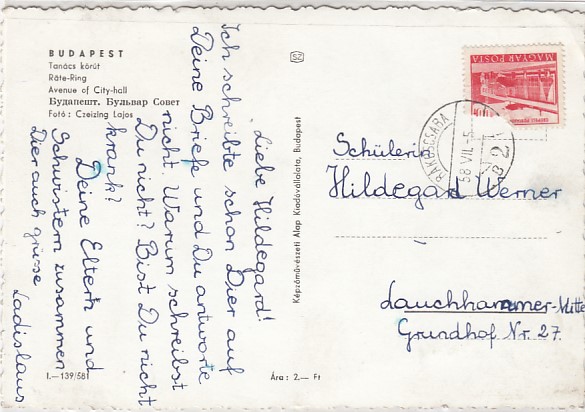 BUDAPEST
Tanács körút
Räte-Ring
Avenue of City-hall
Будапешт. Бульвар Совет
Fotó : Czeizing Lajos
SZ
MAGYAR POSTA
RÁKOSCSABA
58 VII.
Liebe Hildegard!
Ich schreibte schon Dier auf
Deine Briefe und Du antworte
nicht Warum schreibst
Du nicht? Bist Du nicht
krank?
Deine Eltern und
Schwistern zusammen
Dier auch grüsse
Ladislaus
Képzőművészeti Alap Kiadóvállalata, Budapest
Schülerin
Hildegard Werner
Lauchhammer-Mitte
Grundhof Nr. 27.
I.—139/581
Ára : 2.— Ft